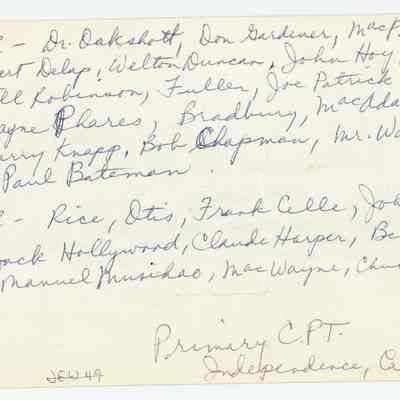 - Dr. Oakshott, Don Gardiner, MacP
ert Delap, Welton Duncan, John Hoy
ll Robinson, Fuller, Joe Patrick
ayne Phares, Bradbury, MacAda
arry Knapp, Bob Chapman, Mr. Wa
Paul Bateman.
- Rice, Otis, Frank Celle, Joh
ack Hollywood, Claude Harper, Be
Manuel Musichao, MacWayne, Chu
Primary C.P.T.
Independence, Ca
JEW 49